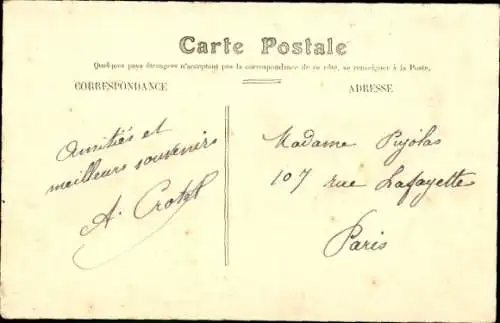 Carte Postale
Quelques pays étrangers n'acceptant pas la correspondance de ce côté, se renseigner à la Poste.
CORRESPONDANCE
ADRESSE
Amitiés et
meilleurs souvenirs
A. Crotet
Madame Pujolas
107 rue Lafayette
Paris